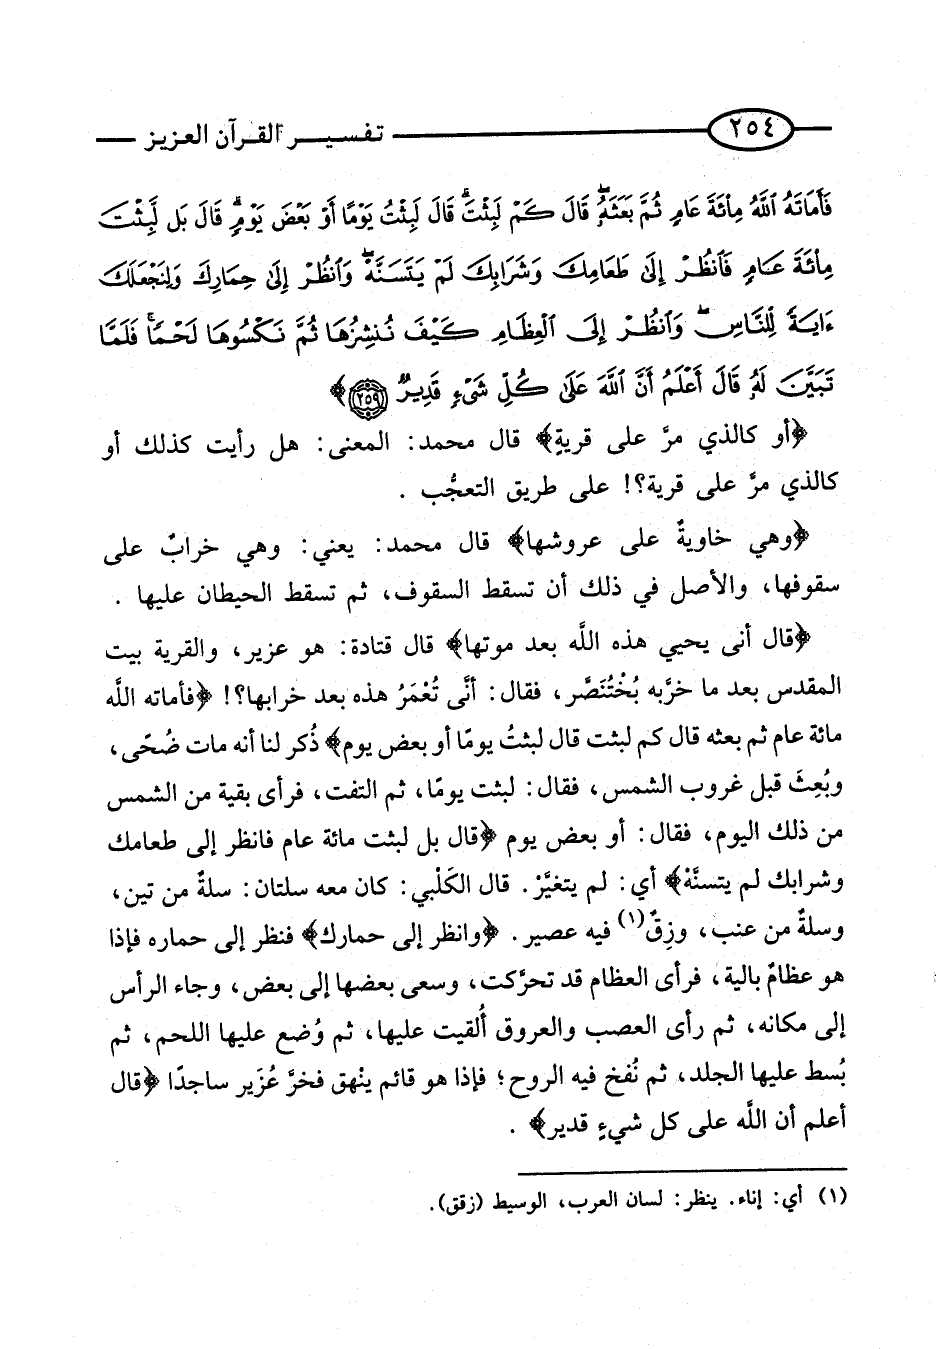 ٢٥٤ تفسير القرآن العزيز
فَأَمَاتَهُ ٱللَّهُ مِا۟ئَةَ عَامٍ ثُمَّ بَعَثَهُۥۖ قَالَ كَمْ لَبِثْتَۖ قَالَ لَبِثْتُ يَوْمًا أَوْ بَعْضَ يَوْمٍۖ قَالَ بَل لَّبِثْتَ
مِا۟ئَةَ عَامٍ فَٱنظُرْ إِلَىٰ طَعَامِكَ وَشَرَابِكَ لَمْ يَتَسَنَّهْۖ وَٱنظُرْ إِلَىٰ حِمَارِكَ وَلِنَجْعَلَكَ
ءَايَةً لِّلنَّاسِۖ وَٱنظُرْ إِلَى ٱلْعِظَامِ كَيْفَ نُنشِزُهَا ثُمَّ نَكْسُوهَا لَحْمًاۚ فَلَمَّا
تَبَيَّنَ لَهُۥ قَالَ أَعْلَمُ أَنَّ ٱللَّهَ عَلَىٰ كُلِّ شَىْءٍ قَدِيرٌ ٢٥٩﴾
﴿أو كالذي مرَّ على قريةٍ﴾ قال محمد: المعنى: هل رأيت كذلك أو
كالذي مرَّ على قرية؟! على طريق التعجُّب .
﴿وهي خاويةٌ على عروشها﴾ قال محمد: يعني: وهي خرابٌ على
سقوفها، والأصل في ذلك أن تسقط السقوف، ثم تسقط الحيطان عليها .
﴿قال أنى يحيي هذه الله بعد موتها﴾ قال قتادة: هو عزير، والقرية بيت
المقدس بعد ما خرَّبه بُخْتُنَصَّر، فقال: أنَّى تُعْمَرُ هذه بعد خرابها؟! ﴿فأماته اللَّه
مائة عام ثم بعثه قال كم لبثت قال لبثتُ يومًا أو بعض يوم﴾ ذُكر لنا أنه مات ضُحًى،
وبُعِثَ قبل غروب الشمس، فقال: لبثت يومًا، ثم التفت، فرأى بقية من الشمس
من ذلك اليوم، فقال: أو بعض يوم ﴿قال بل لبثت مائة عام فانظر إلى طعامك
وشرابك لم يتسنَّهْ﴾ أي: لم يتغيَّرْ. قال الكَلْبي: كان معه سلتان: سلةٌ من تين،
وسلةٌ من عنب، وزِقٌ(١) فيه عصير. ﴿وانظر إلى حمارك﴾ فنظر إلى حماره فإذا
هو عظامٌ بالية، فرأى العظام قد تحرَّكت، وسعى بعضها إلى بعض، وجاء الرأس
إلى مكانه، ثم رأى العصب والعروق أُلقيت عليها، ثم وُضع عليها اللحم، ثم
بُسط عليها الجلد، ثم نُفخ فيه الروح؛ فإذا هو قائم ينْهق فخرَّ عُزَير ساجدًا ﴿قال
أعلم أن اللَّه على كل شيءٍ قدير﴾ .
(١) أي: إناء. ينظر: لسان العرب، الوسيط (زقق).